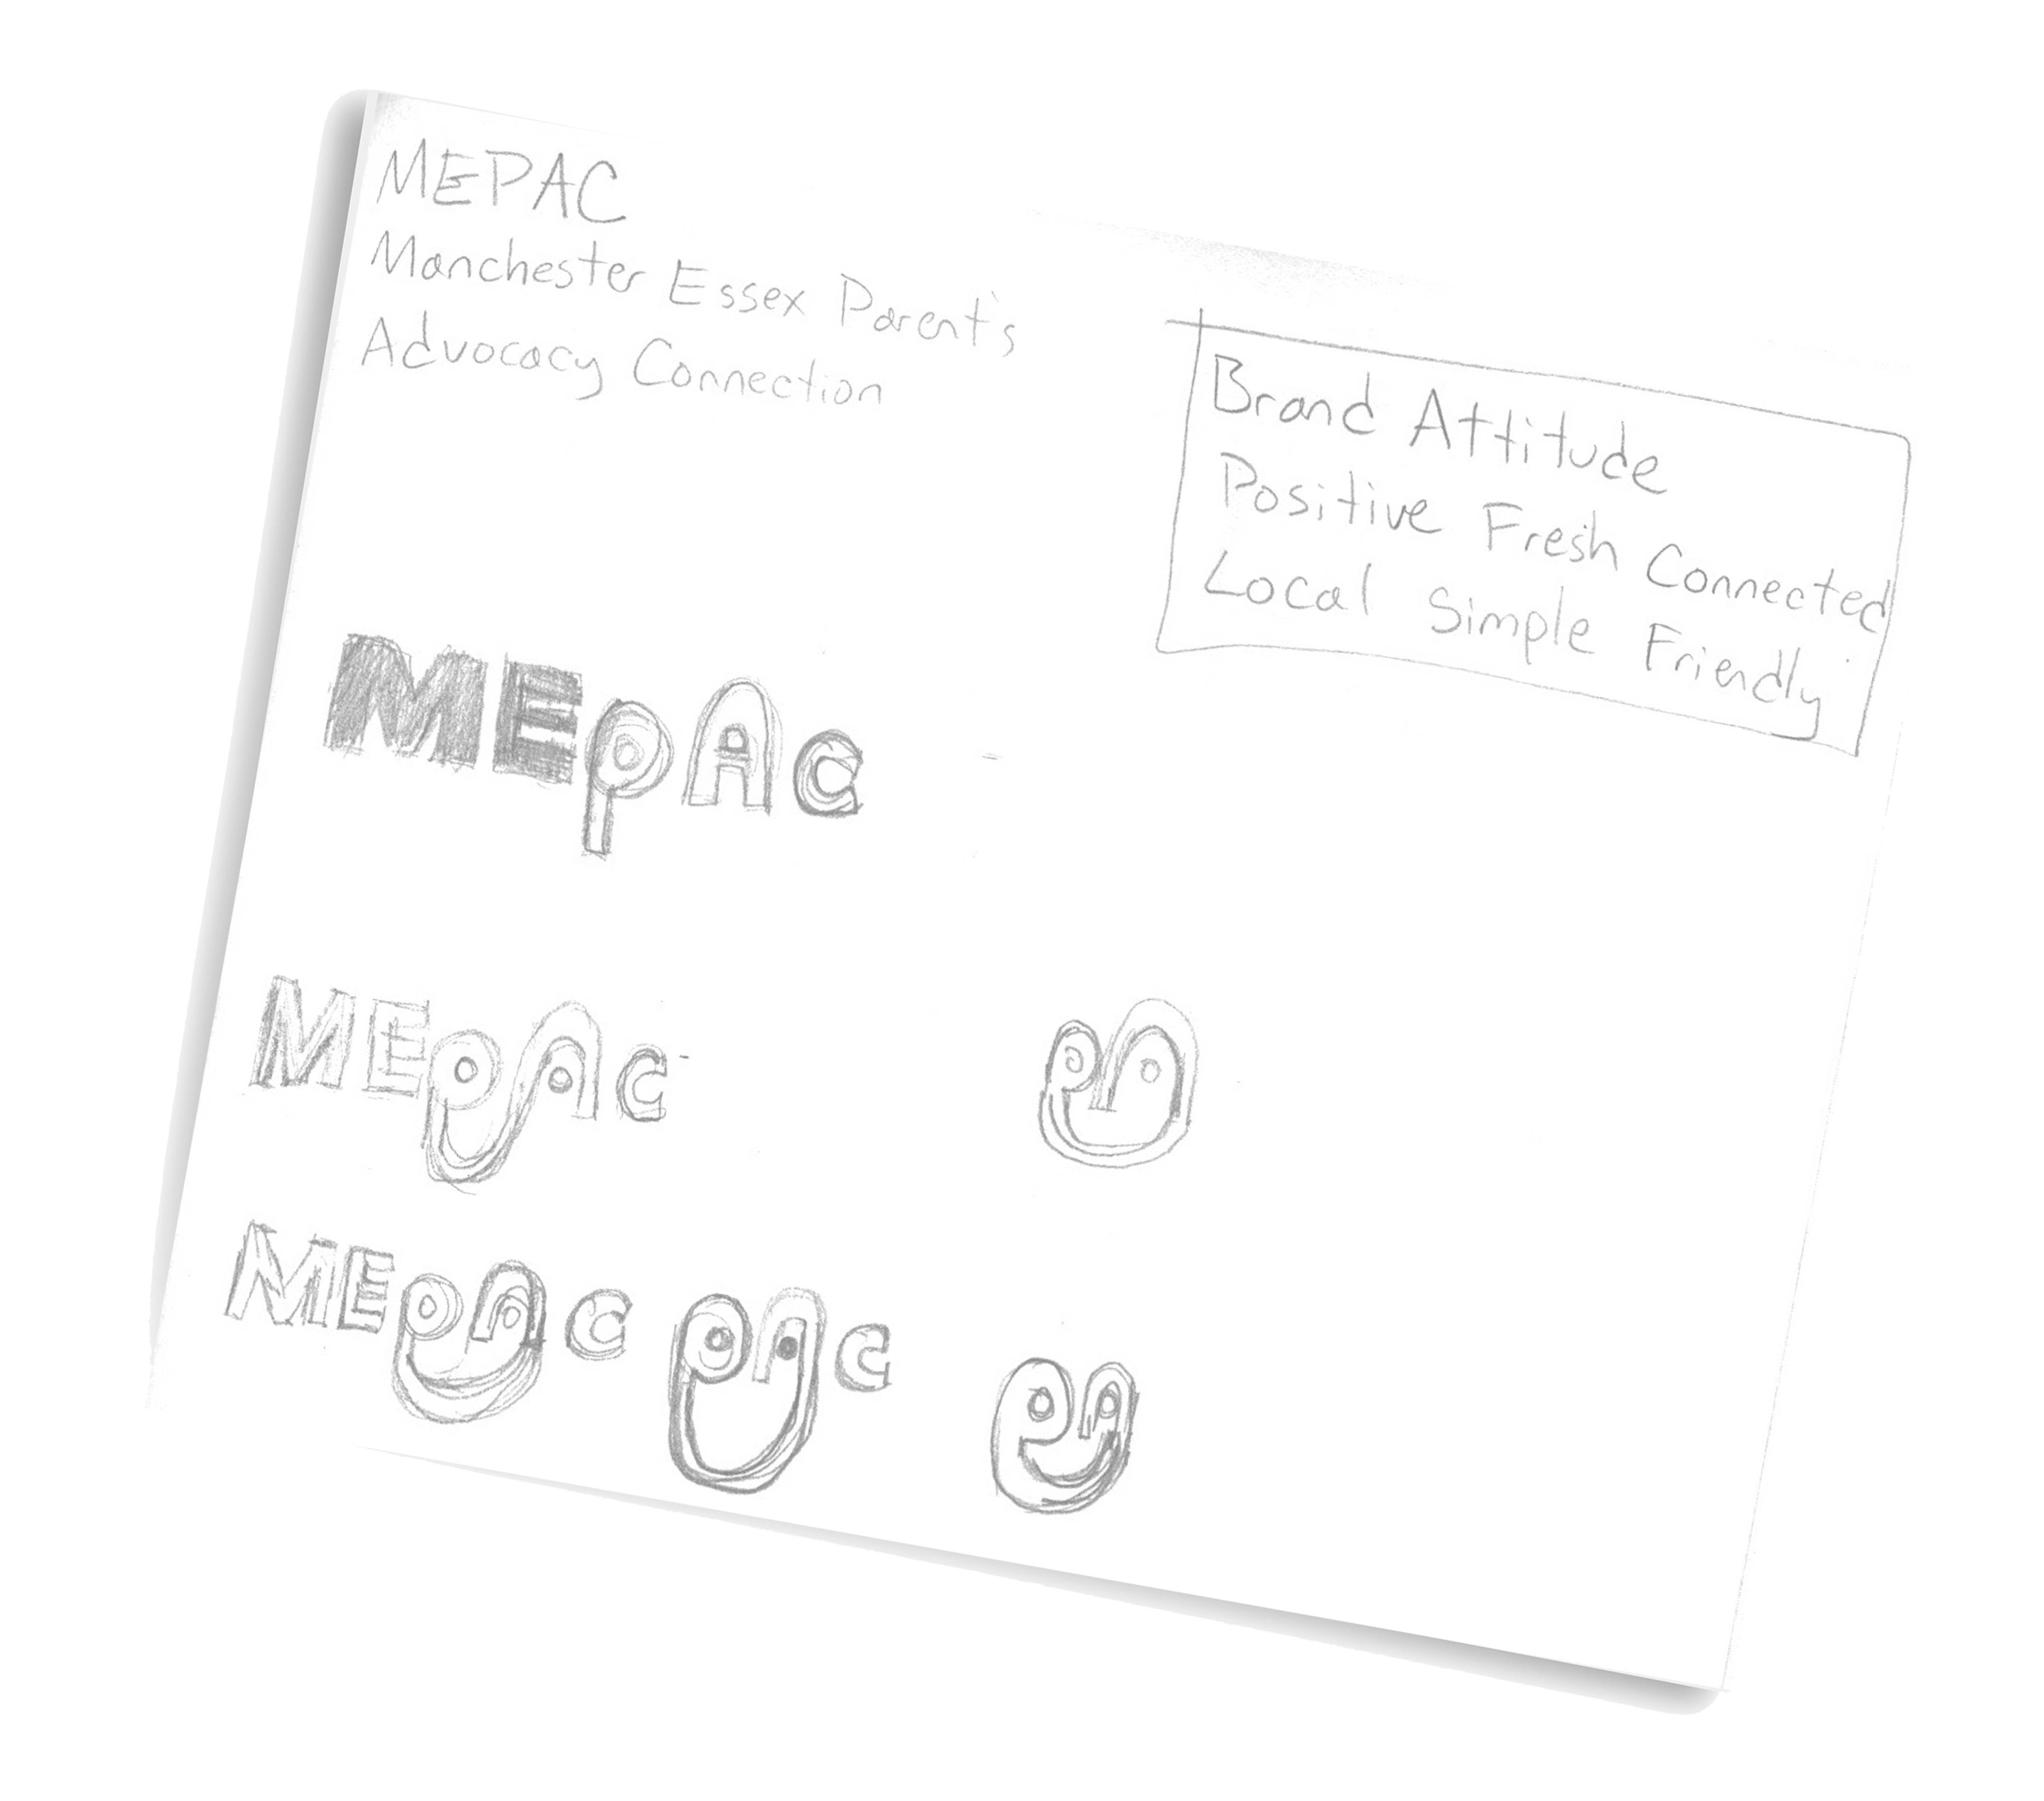 MEPAC
Manchester Essex Parent's
Advocacy Connection
Brand Attitude
Positive Fresh Connected
Local Simple Friendly
MEpAc
MEpAc
pA
MEpAc
pAc
pA